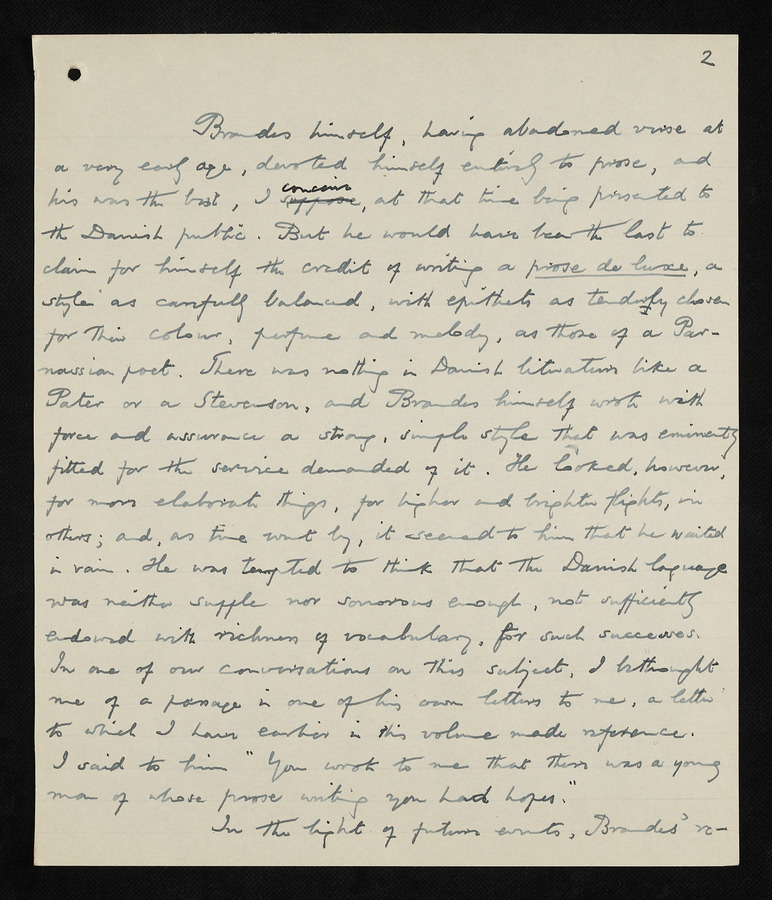 2
Brandes himself, having abadoned verse at
a very early age, devoted himself entirely to prose, and
his was the best, I suppose conceive, at that time being presented to
the Danish public. But he would have been the last to
claim for himself the credit of writing a prose de luxe, a
style as carefully balanced, with epithets as tenderly chosen
for their colour, perfume and melody, as those of a Par-
nassian poet. There was nothing in Danish literature like a
Pater or a Stevenson, and Brandes himself wrote with
force and assurance a strong, simple style that was eminently
fitted for the service demanded of it. He looked, however,
for more elaborate things, for higher and brighter flights, in
others; and, as time went by, it seemed to him that he waited
in vain. He was tempted to think that the Danish language
was neither supple nor sonorous enough, not sufficiently
endowed with richness of vocabulary, for such successes.
In one of our conversations on this subject, I bethought
me of a passage in one of his own letters to me, a letter
to which I have earlier in this volume made reference.
I said to him "You wrote to me that there was a young
man of whose prose writing you had hopes."
In the light of future events, Brandes' re-